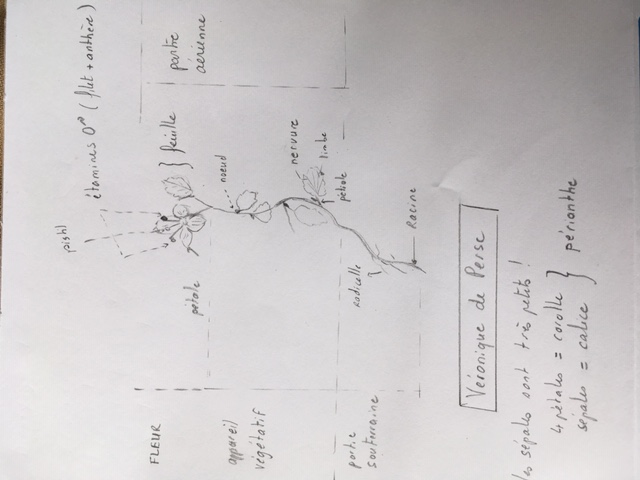 pistl
étamines ♂ (filet + anthère)
FLEUR
pétale
feuille
partie
aérienne
appareil
végétatif
noeud
nervure
limbe
pétiole
partie
souterraine
Radicelle
Racine
Véronique de Perse
les sépales sont très petits !
4 pétales = corolle
sépales = calice
périanthe